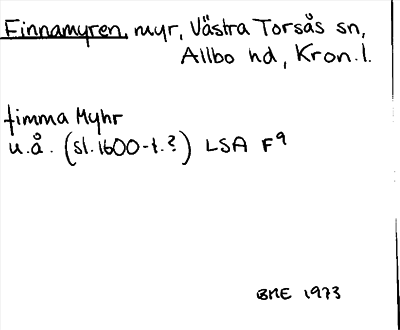 Finnamyren, myr, Västra Torsås sn,
Allbo hd, Kron.l.
fimma Myhr
u.å. (sl. 1600-t.?) LSA F9
BME 1973